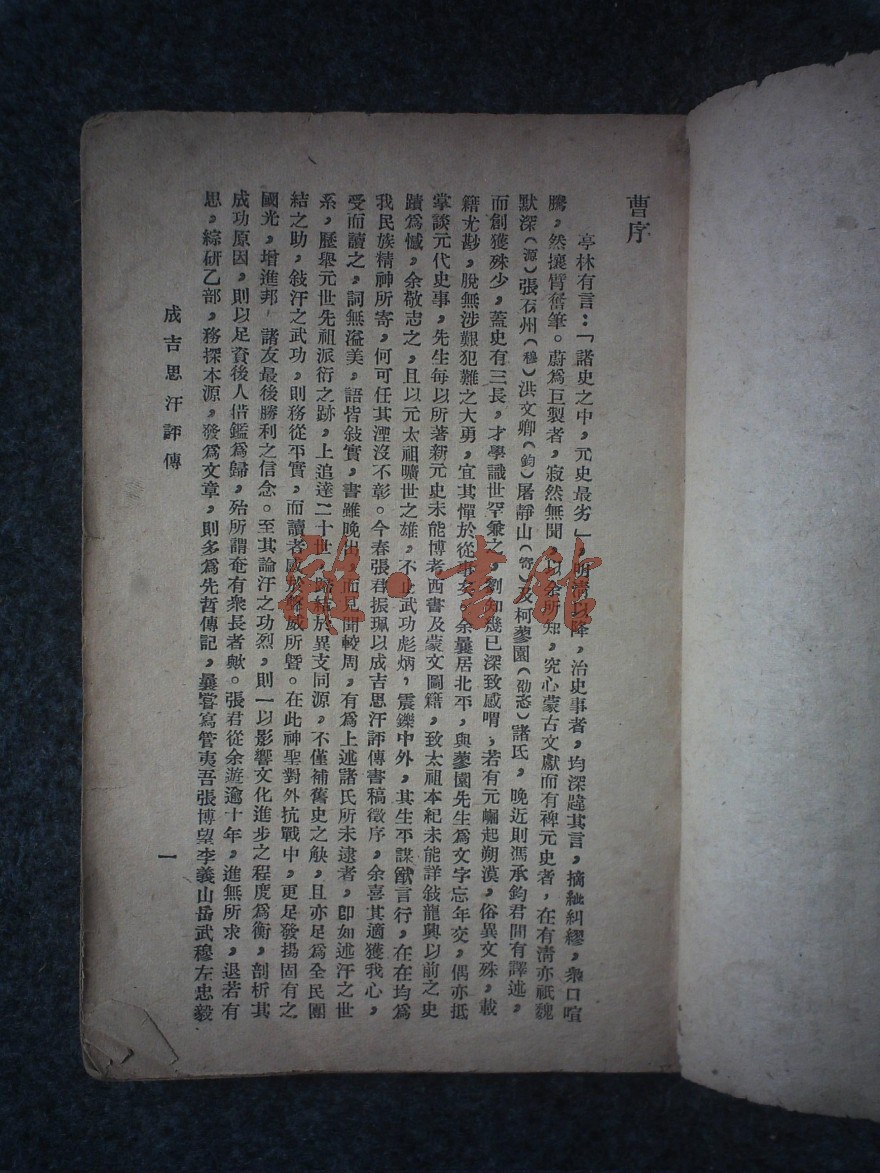 曹序
亭林有言：「諸史之中，元史最劣」，明清以降，治史事者，均深韙其言，摘紕糾繆，衆口喧
騰，然攘臂奮筆。蔚爲巨製者，寂然無聞，以余所知，究心蒙古文獻而有裨元史者，在有清亦祇魏
默深（源）張石州（穆）洪文卿（鈞）屠靜山（寄）及柯蓼園（劭忞）諸氏，晚近則馮承鈞君間有譯述，
而創獲殊少，蓋史有三長，才學識世罕兼之，劉知幾已深致感喟，若有元崛起朔漠，俗異文殊，載
籍尤尠，脫無涉艱犯難之大勇，宜其憚於從事矣。余曩居北平，與蓼園先生爲文字忘年交，偶亦抵
掌談元代史事，先生每以所著新元史未能博考西書及蒙文圖籍，致太祖本紀未能詳敍龍興以前之史
蹟爲憾，余敬志之，且以元太祖曠世之雄，不止武功彪炳，震鑠中外，其生平謀猷言行，在在均爲
我民族精神所寄，何可任其湮沒不彰。今春張君振珮以成吉思汗評傳書稿徵序，余喜其適獲我心，
受而讀之，詞無溢美，語皆敍實，書雖晚出，而見聞較周，有爲上述諸氏所未逮者，卽如述汗之世
系，歷舉元世先祖派衍之跡，上追達二十世，歸結於異支同源，不僅補舊史之缺，且亦足爲全民團
結之助，敍汗之武功，則務從平實，而讀者感於聲威所曁。在此神聖對外抗戰中，更足發揚固有之
國光，增進邦 諸友最後勝利之信念。至其論汗之功烈，則一以影響文化進步之程度爲衡，剖析其
成功原因，則以足資後人借鑑爲歸，殆所謂奄有衆長者歟。張君從余遊逾十年，進無所求，退若有
思，綜研乙部，務探本源，發爲文章，則多爲先哲傳記，曩嘗寫管夷吾張博望李義山岳武穆左忠毅
成吉思汗評傳
一
雜·書館